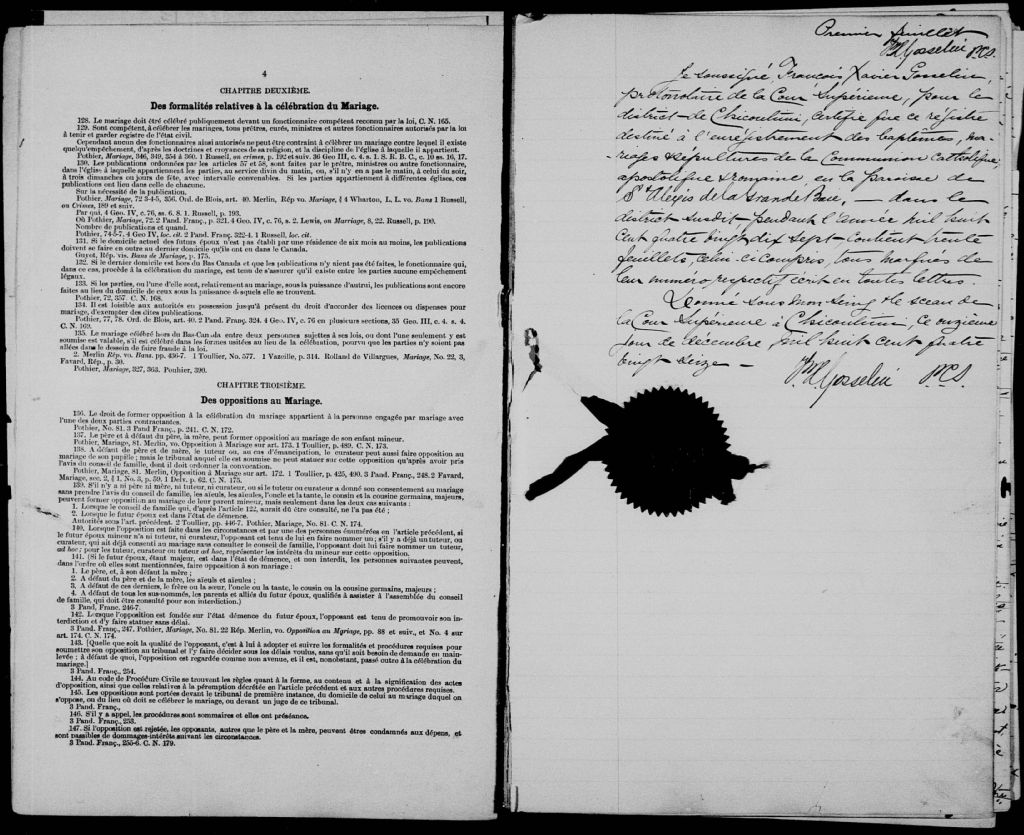 4
CHAPITRE DEUXIÈME.
Des formalités relatives à la célébration du Mariage.
128. Le mariage doit être célébré publiquement devant un fonctionnaire compétent reconnu par la loi, C. N. 165.
129. Sont compétent, à célébrer les mariages, tous prêtres, curés, ministres et autres fonctionnaires autorisés par la loi
à tenir et garder registre de l'état civil.
Cependant aucun des fonctionnaires ainsi autorisés ne peut être contraint à célébrer un mariage contre lequel il existe
quelqu'empêchement, d'après les doctrines et croyances de sa religion, et la discipline de l'église à laquelle il appartient.
Pothier, Mariage, 346, 349, 354 à 360. 1 Russell, on crimes, p. 192 et suiv. 36 Geo III, c. 4. s. 1. S. R. B. C., c. 20 ss. 16, 17.
130. Les publications ordonnées par les articles 57 et 58, sont faites par le prêtre, ministre ou autre fonctionnaire,
dans l'église à laquelle appartiennent les parties, au service divin du matin, ou, s'il n'y en a pas le matin, à celui du soir,
à trois dimanches ou jours de fête, avec intervalle convenables. Si les parties appartiennent à différentes églises, ces
publications ont lieu dans celle de chacune.
Sur la nécessité de la publication.
Pothier, Mariage, 72 3-4-5, 356. Ord. de Blois, art. 40. Merlin, Rép vo. Mariage, § 4 Wharton, L. L. vo. Bans 1 Russell,
on Crimes, 189 et suiv.
Par qui, 4 Geo. IV, c. 76, ss. 6. 8. 1. Russell, p. 193.
Où Pothier, Mariage, 72. 2 Pand. Franç., p. 321. 4 Geo. IV, c. 76, s. 2. Lewis, on Marriage, 8, 22. Russell, p. 190.
Nombre de publications et quand.
Pothier, 74-5-7. 4 Geo IV, loc. cit. 2 Pand. Franç. 322-4. 1 Russell, loc. cit.
131. Si le domicile actuel des futurs époux n'est pas établi par une résidence de six mois au moins, les publications
doivent se faire en outre au dernier domicile qu'ils ont eu dans le Canada.
Guyot, Rép. vis. Bans de Mariage, p. 175.
132. Si le dernier domicile est hors du Bas Canada et que les publications n'y aient pas été faites, le fonctionnaire qui,
dans ce cas, procède à la célébration du mariage, est tenu de s'assurer qu'il existe entre les parties aucune empêchement
légaux.
133. Si les parties, ou l'une d'elle sont, relativement au mariage, sous la puissance d'autrui, les publications sont encore
faites au lieu du domicile de ceux sous la puissance desquels elle se trouvent.
Pothier, 72, 357. C. N. 168.
134. Il est loisible aux autorités en possession jusqu'à présent du droit d'accorder des licences ou dispenses pour
mariage, d'exempter des dites publications.
Pothier, 77, 78. Ord. de Blois, art. 40. 2 Pand. Franç. 324. 4 Geo. IV, c. 76 en plusieurs sections, 35 Geo. III, c. 4. s. 4.
C. N. 169.
135. Le mariage célébré hors du Bas-Canada entre deux personnes sujettes à ses lois, ou dont l'une seulement y est
soumise est valable, s'il est célébré dans les formes usitées au lieu de la célébration, pourvu que les parties n'y soient pas
allées dans le dessein de faire fraude à la loi.
2. Merlin Rép. vo. Bans. pp. 436-7. 1 Toullier, No. 577. 1 Vazeille, p. 314. Rolland de Villargues, Mariage, No. 22, 3,
Favard, Rép., p. 30.
Pothier, Mariage, 327, 363. Pouhier, 390.
CHAPITRE TROISIÈME.
Des oppositions au Mariage.
136. Le droit de former opposition à la célébration du mariage appartient à la personne engagée par mariage avec
l'une des deux parties contractantes.
Pothier, No. 81. 3 Pand Franç., p. 241. C. N. 172.
137. Le père et à défaut du père, la mère, peut former opposition au mariage de son enfant mineur.
Pothier, Mariage, 81. Merlin, vo. Opposition à Mariage sur art. 173. 1 Toullier, p. 489. C. N. 173.
138. A défaut de père et de mère, le tuteur ou, au cas d'émancipation, le curateur peut aussi faire opposition au
mariage de son pupille; mais le tribunal auquel elle est soumise ne peut statuer sur cette opposition qu'après avoir pris
l'avis du conseil de famille, dont il doit ordonner la convocation.
Pothier, Mariage, 81. Merlin, Opposition à Mariage sur art. 172. 1 Toullier, p. 425, 490. 3 Pand. Franç., 248. 2 Favard,
Mariage, sec. 2, § 1, No. 3, p. 59. 1 Delv. p. 62. C. N. 175.
139. S'il n'y a ni père ni mère, ni tuteur, ni curateur, ou si le tuteur ou curateur a donné son consentement au mariage
sans prendre l'avis du conseil de famille, les aïeuls, les aïeules, l'oncle et la tante, le cousin et la cousine germains, majeurs,
peuvent former opposition au mariage de leur parent mineur, mais seulement dans les deux cas suivants:
1. Lorsque le conseil de famille qui, d'après l'article 122, aurait dû être consulté, ne l'a pas été;
2. Lorsque le futur époux est dans l'état de démence.
Autorités sous l'art. précédent. 2 Toullier, pp. 446-7. Pothier, Mariage, No. 81. C. N. 174.
140. Lorsque l'opposition est faite dans les circonstances et par une des personnes énumérées en l'article précédent, si
le futur époux mineur n'a ni tuteur, ni curateur, l'opposant est tenu de lui en faire nommer un; s'il y a déjà un tuteur, ou
curateur, qui ait déjà consenti au mariage sans consulter le conseil de famille, l'opposant doit lui faire nommer un tuteur,
ad hoc; pour les tuteur, curateur ou tuteur ad hoc, représenter les intérêts du mineur sur cette opposition.
141. (Si le futur époux, étant majeur, est dans l'état de démence, et non interdit, les personnes suivantes peuvent,
dans l'ordre où elles sont mentionnées, faire opposition à son mariage:
1. Le père, et, à son défaut la mère;
2. A défaut du père et de la mère, les aïeuls et aïeules;
3. A défaut de ces derniers, le frère ou la sœur, l'oncle ou la tante, le cousin ou la cousine germains, majeurs;
4. A défaut de tous les sus-nommés, les parents et alliés du futur époux, qualifiés à assister à l'assemblée du conseil
de famille, qui doit être consulté pour son interdiction.)
3 Pand. Franc. 246-7.
142. Lorsque l'opposition est fondée sur l'état démence du futur époux, l'opposant est tenu de promouvoir son in-
terdiction et d'y faire statuer sans délai.
3 Pand. Franç., 247. Pothier, Mariage, No. 81. 22 Rép. Merlin, vo. Opposition au Mariage, pp. 88 et suiv., et No. 4 sur
art. 174. C. N. 174.
143. [Quelle que soit la qualité de l'opposant, c'est à lui à adopter et suivre les formalités et procédures requises pour
soumettre son opposition au tribunal et l'y faire décider sous les délais voulus, sans qu'il soit besoin de demande en main-
levée; à défaut de quoi, l'opposition est regardée comme non avenue, et il est, nonobstant, passé outre à la célébration du
mariage.]
3 Pand. Franç., 254.
144. Au code de Procédure Civile se trouvent les règles quant à la forme, au contenu et à la signification des actes
d'opposition, ainsi que celles relatives à la péremption décrétée en l'article précédent et aux autres procédures requises.
145. Les oppositions sont portées devant le tribunal de première instance, du domicile de celui au mariage duquel on
s'oppose, ou du lieu où doit se célébrer le mariage, ou devant un juge de ce tribunal.
3 Pand. Franç.,
146. S'il y a appel, les procédures sont sommaires et elles ont préséance.
3 Pand. Franç., 253.
147. Si l'opposition est rejetée, les opposants, autres que le père et la mère, peuvent être condamnés aux dépens, et
sont passibles de dommages-intérêts suivant les circonstances.
3 Pand. Franç., 255-6. C. N. 179.
Premier feuillet
Gosselin P.C.S.
Je soussigné, François Xavier Gosselin,
protonotaire de la Cour Supérieure, pour le
district de Chicoutimi, certifie que ce registre
destiné à l'enregistrement des baptêmes, ma-
riages & sépultures de la Communion Catholique,
apostolique & romaine, en la paroisse de
St Alexis de la Grande Baie, — dans le
district susdit, pendant l'année mil huit
cent quatre vingt dix sept contient trente
feuillets, celui-ci compris, tous marqués de
leur numéro respectif écrit en toutes lettres.
Donné sous mon seing & le sceau de
la Cour Supérieure à Chicoutimi, ce onzième
jour de décembre, mil huit cent quatre
vingt seize —
Gosselin P.C.S.